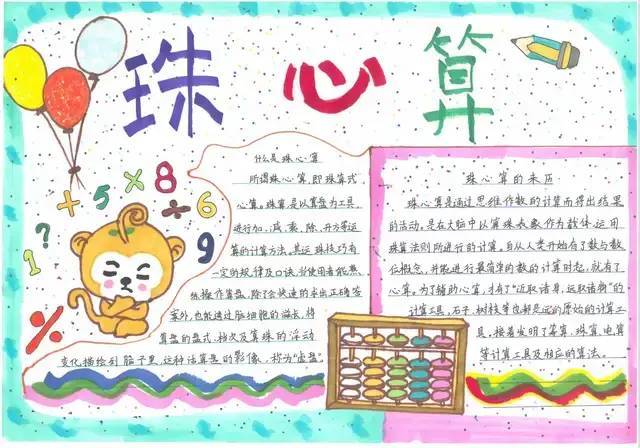 珠心算
1 ? + 5 × 8 ÷ 6 9 %
什么是珠心算
所谓珠心算,即珠算式
心算。珠算是以算盘为工具,
进行加、减、乘、除、开方等运
算的计算方法。其运珠技巧有
一定的规律及口诀,当使用者能熟
练操作算盘,除了会快速的求出正确答
案外,也能透过脑细胞的滋长,将
算盘的盘式、档次及算珠的浮动
变化,描绘到脑子里,这种活算
的影像,称为"虚盘"
珠心算的来历
珠心算是通过思维作数的计算而得出结果
的活动。是在大脑中以算珠表象作为载体,运用
珠算法则所进行的计算。自从人类开始有了数与数
位概念,并能进行最简单的数的计算时起,就有了
心算。为了辅助心算,才有了"近取诸身,远取诸物"的
计算工具,石子、树枝等也都是远的原始的计算工
具,接着发明了筹算、珠算、电算
等计算工具及相应的算法。